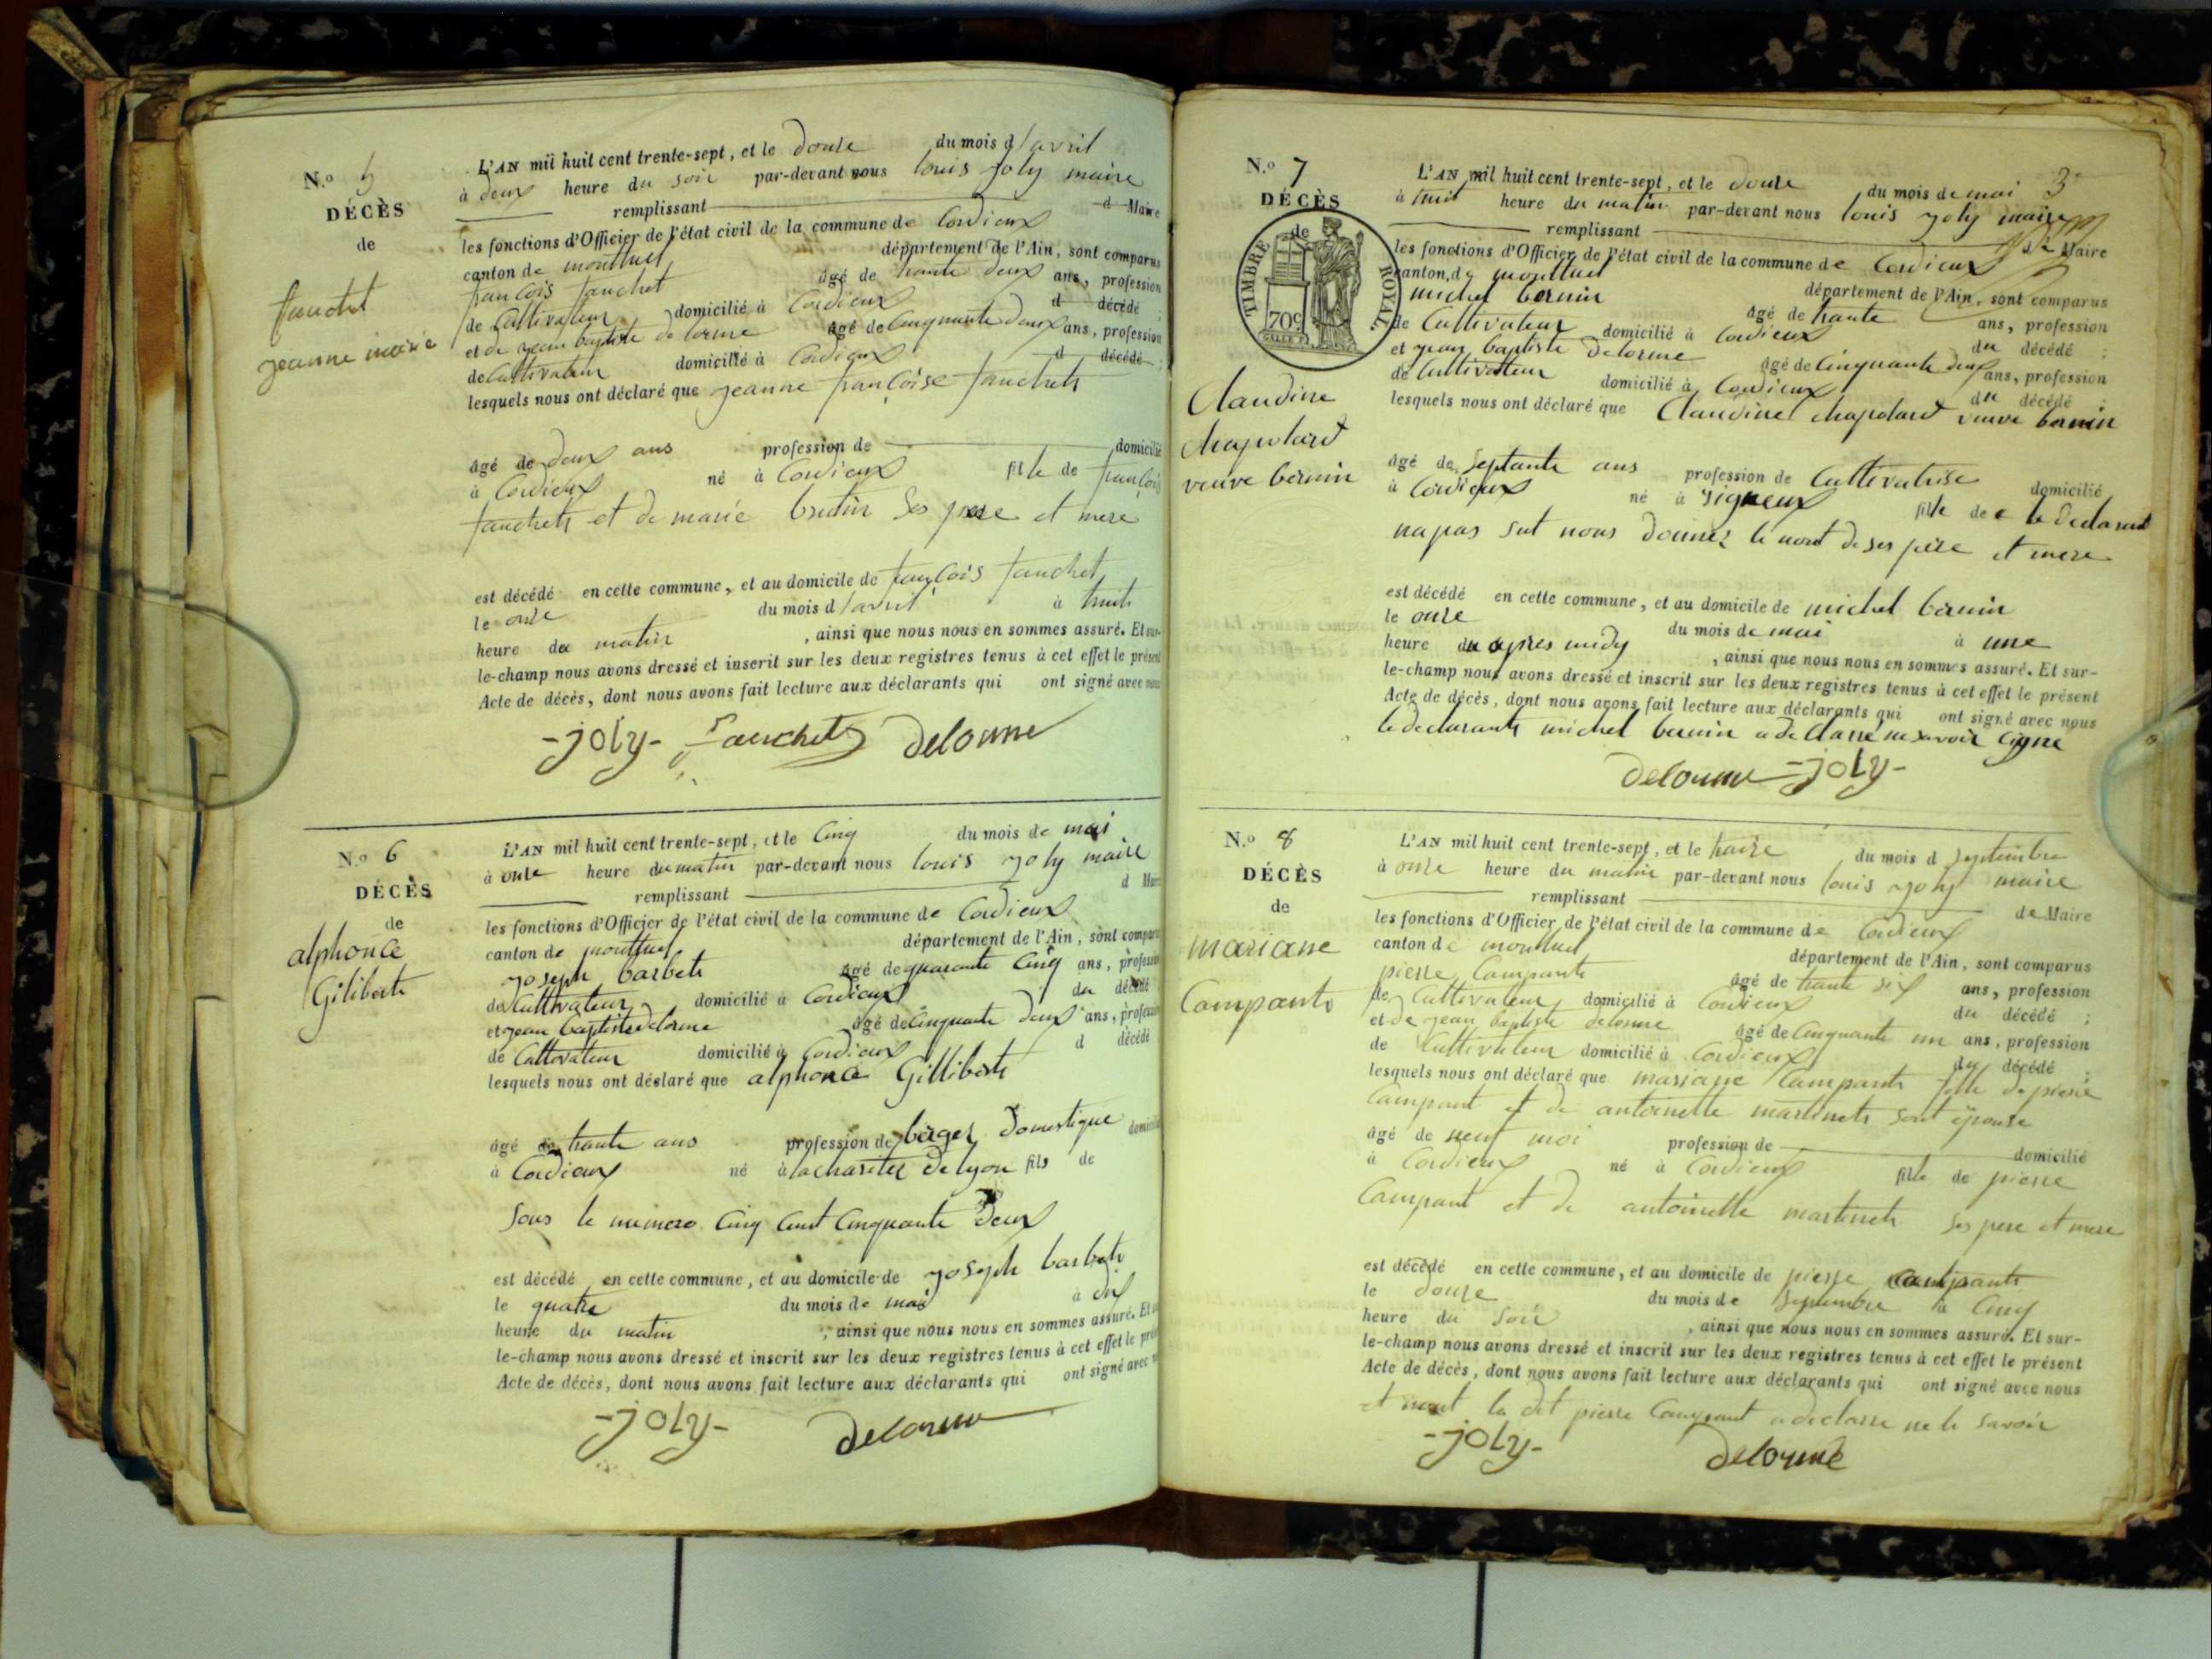 N.o 5
DÉCÈS
de
fauchet
jeanne marie
L'AN mil huit cent trente-sept, et le douze du mois d'avril
à deux heure du soir par-devant nous louis joly maire
remplissant d Maire
les fonctions d'Officier de l'état civil de la commune de Cordieux
canton de montluel département de l'Ain, sont comparus
françois fauchet âgé de trante deux ans, profession
de Cultivateur domicilié à Cordieux d décédé ;
et de jean baptiste delorme âgé de Cinquante deux ans, profession
de Cultivateur domicilié à Cordieux d décédé ;
lesquels nous ont déclaré que jeanne françoise fauchets
âgé de deux ans profession de domicilié
à Cordieux né à Cordieux fille de françois
fauchets et de marie brutin ses pere et mere
est décédé en cette commune, et au domicile de françois fauchet
le onze du mois d'avril à huit
heure du matin , ainsi que nous nous en sommes assuré. Et sur-
le-champ nous avons dressé et inscrit sur les deux registres tenus à cet effet le présent
Acte de décès, dont nous avons fait lecture aux déclarants qui ont signé avec nous
-joly- fauchet Delorme
N.o 6
DÉCÈS
de
alphonce
Giliberte
L'AN mil huit cent trente-sept, et le Cinq du mois de mai
à onze heure du matin par-devant nous louis joly maire
remplissant d Maire
les fonctions d'Officier de l'état civil de la commune de Cordieux
canton de montluel département de l'Ain, sont comparus
joseph barbets âgé de quarante Cinq ans, profession
de Cultivateur domicilié à Cordieux du décédé
et jean baptiste delorme âgé de Cinquante deux ans, profession
de Cultivateur domicilié à Cordieux d décédé
lesquels nous ont déclaré que alphonce Gilliberts
âgé de trante ans profession de berger Domestique domicilié
à Cordieux né à lachariter de lyon fils de
Sous le numero Cinq Cent Cinquante Deux
est décédé en cette commune, et au domicile de joseph barbets
le quatre du mois de mai à dix
heure du matin , ainsi que nous nous en sommes assuré. Et sur-
le-champ nous avons dressé et inscrit sur les deux registres tenus à cet effet le présent
Acte de décès, dont nous avons fait lecture aux déclarants qui ont signé avec nous
-joly- Delorme
N.o 7
DÉCÈS
de
TIMBRE ROYAL.
70c
Claudine
chapolard
veuve bernin
3
L'AN mil huit cent trente-sept, et le douze du mois de mai
à huit heure du matin par-devant nous louis joly maire
remplissant de Maire
les fonctions d'Officier de l'état civil de la commune de Cordieux
canton de montluel département de l'Ain, sont comparus
michel bernin âgé de trante ans, profession
de Cultivateur domicilié à Cordieux du décédé ;
et jean baptiste Delorme âgé de Cinquante deux ans, profession
de Cultivateur domicilié à Cordieux du décédé ;
lesquels nous ont déclaré que Claudine chapolard veuve bernin
âgé de Septante ans profession de Cultivatrise domicilié
à Cordieux né à rigneux fille de e le declarant
na pas sut nous donner le nont de ses père et mere
est décédé en cette commune, et au domicile de michel bernin
le onze du mois de mai à une
heure du apres midy , ainsi que nous nous en sommes assuré. Et sur-
le-champ nous avons dressé et inscrit sur les deux registres tenus à cet effet le présent
Acte de décès, dont nous avons fait lecture aux déclarants qui ont signé avec nous
le declarants michel bernin a de clarre ne savoir signe
Delorme -joly-
N.o 8
DÉCÈS
de
mariane
Campants
L'AN mil huit cent trente-sept, et le traize du mois d septembre
à onze heure du matin par-devant nous louis joly maire
remplissant de Maire
les fonctions d'Officier de l'état civil de la commune de Cordieux
canton de montluel département de l'Ain, sont comparus
pierre Campants âgé de trante six ans, profession
de Cultivateur domicilié à Cordieux du décédé ;
et de jean baptiste delorme âgé de Cinquante un ans, profession
de Cultivateur domicilié à Cordieux du décédé ;
lesquels nous ont déclaré que mariane Campants fille de pierre
Campant et de antoinette martinets sont épouse
âgé de neuf moi profession de domicilié
à Cordieux né à Cordieux fille de pierre
Campant et de antoinette martinets ses pere et mere
est décédé en cette commune, et au domicile de pierre Campants
le douze du mois de septembre à Cinq
heure du Soir , ainsi que nous nous en sommes assuré. Et sur-
le-champ nous avons dressé et inscrit sur les deux registres tenus à cet effet le présent
Acte de décès, dont nous avons fait lecture aux déclarants qui ont signé avec nous
et nont le dit pierre Campant a declarre ne le savoir
-joly- Delorme